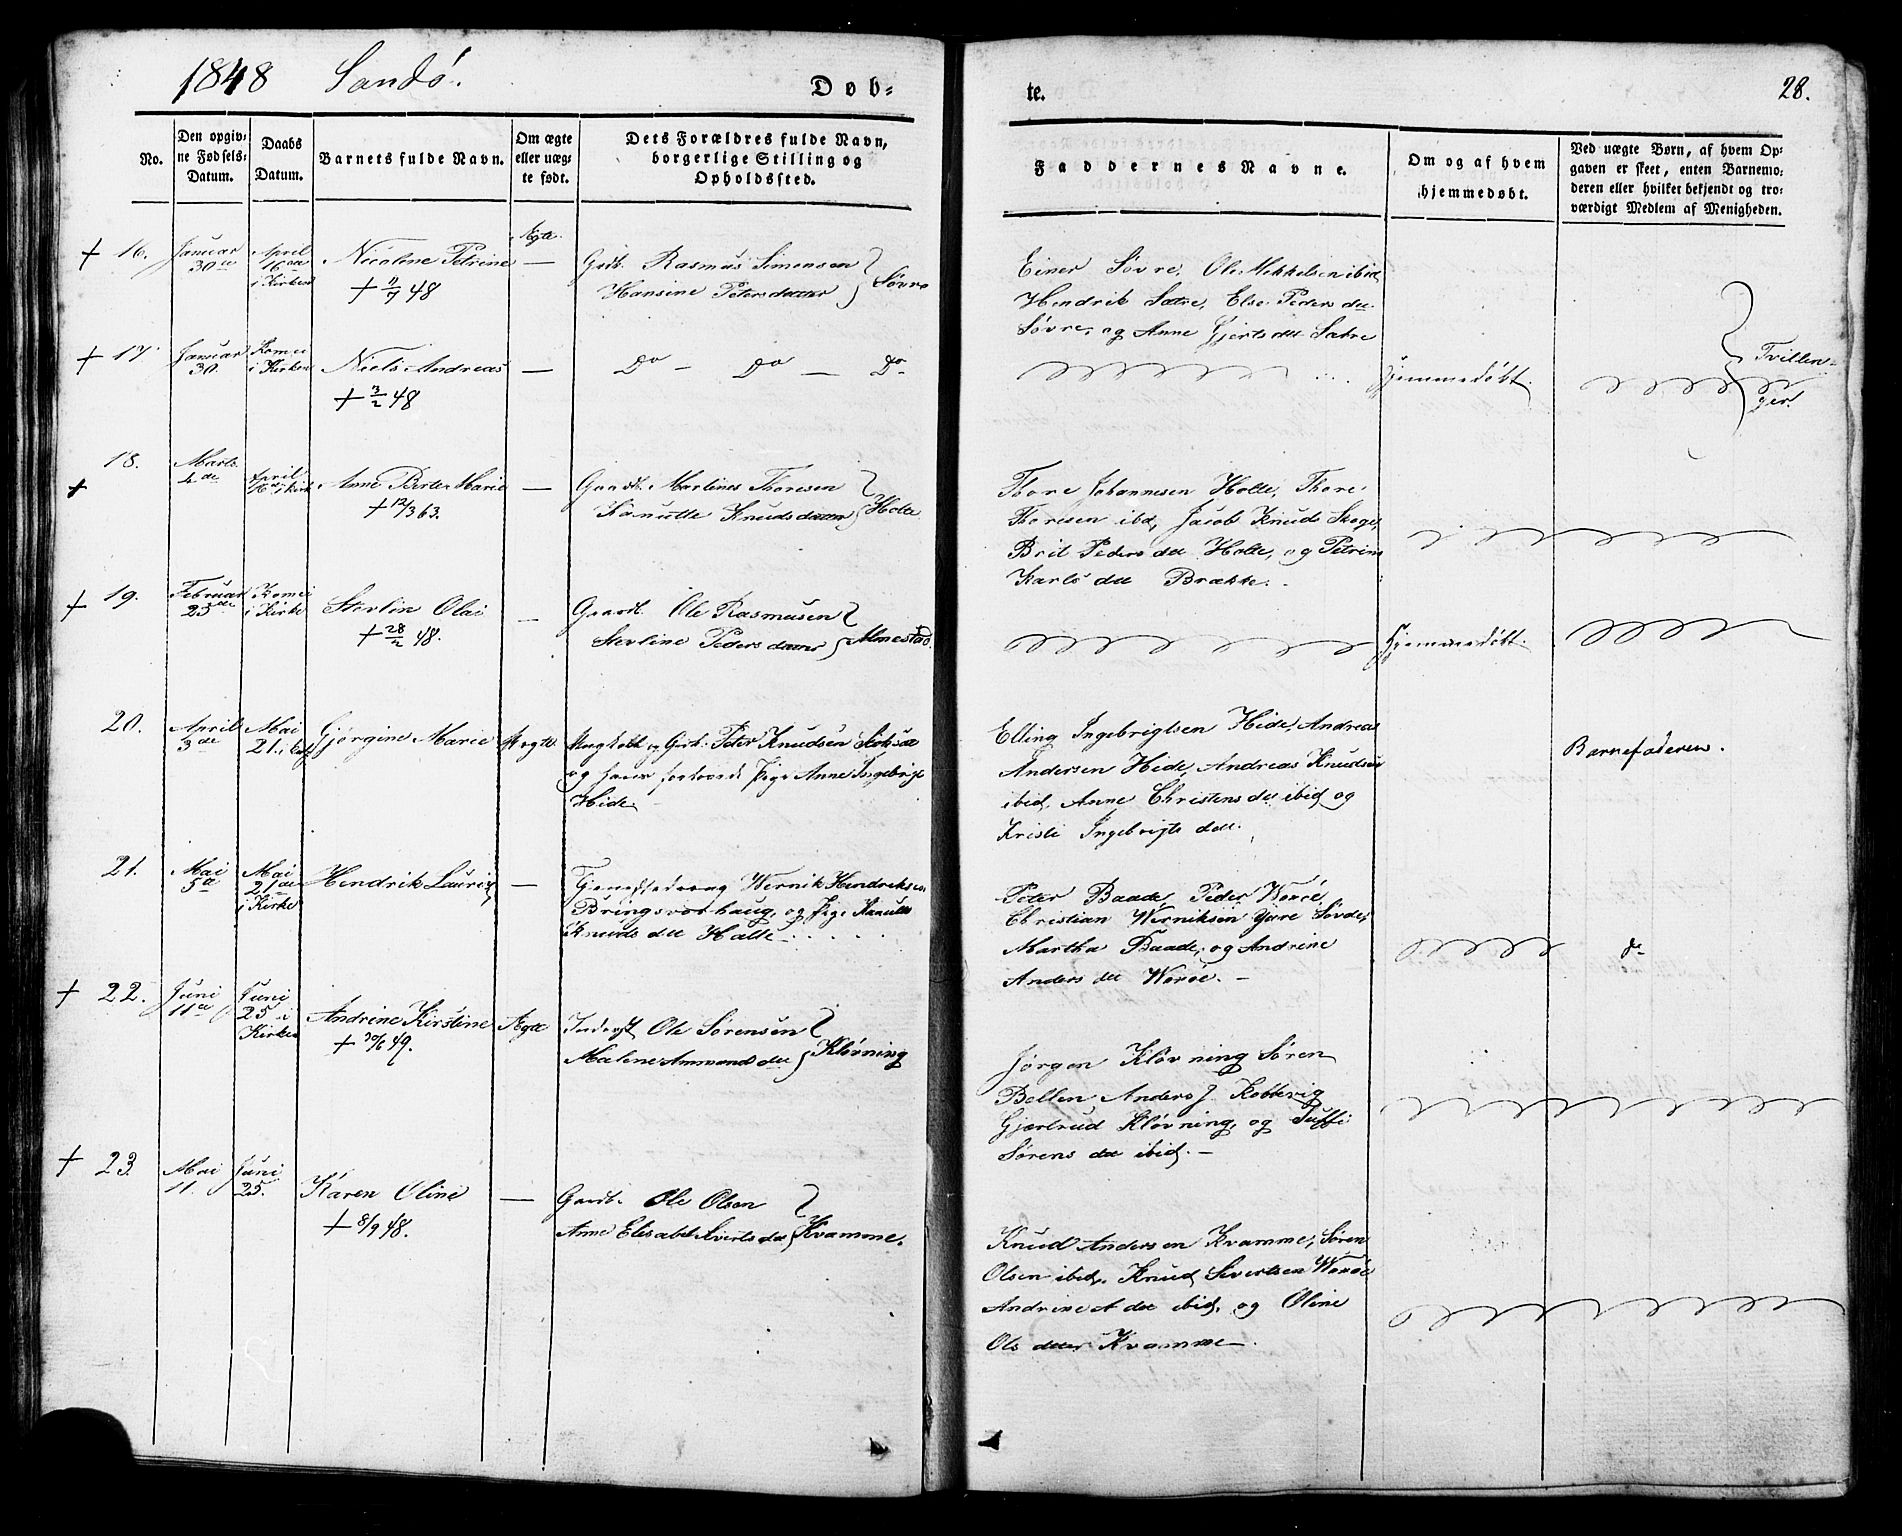 1848 Sandö.
Døb-
te.
28.
No.
Den opgiv-
ne Fødsels-
Datum.
Daabs
Datum.
Barnets fulde Navn.
Om ægte
eller uæg-
te født.
Dets Forældres fulde Navn,
borgerlige Stilling og
Opholdssted.
Faddernes Navne.
Om og af hvem
hjemmedøbt.
Ved uægte Børn, af hvem Op-
gaven er skeet, enten Barnemo-
deren eller hvilket bekjendt og tro-
værdigt Medlem af Menigheden.
+ 16.
Januar
30
April
16de
i Kirken
Nicoline Petrine
+ 11/7 48
Ægte
—
Gdb. Rasmus Simensen
Hansine Petersdatter
Søvre
Einer Søvre, Ole Mekkelsen ibid
Hendrik Sætre, Else Peders dtr
Søvre, og Anne Gjerts dtr Sætre
+ 17.
Januar
30.
i Kirken
Niels Andreas
+ 3/2 48
—
Do — Do — Do
Hjemmedøbt.
Tvillen-
ger.
+ 18.
Marts
4de
April
16de i Kirk
Anne Berte Marie
+ 12/3 63.
—
Gaardb. Martines Thoresen
Kanutte Knudsdatter
Holte
Thore Johannesen Holte, Thore
Thoresen ibd, Jacob Knuds Skoge,
Brit Peders dtr Holte, og Petrine
Karls dtr Brække.
+ 19.
Februar
25de
i Kirke
Sivlin Olai
+ 28/2 48.
—
Gaardb. Ole Rasmusen
Sivline Pedersdatter
Almestad
Hjemmedøbt.
20.
April
3de
Mai
21.
Gjørgine Marie
Uægte
Ungkarl og Peter Knudsen
og Pige Anne Ingebrigt
Hide
Elling Ingebrigtsen Hide, Andreas
Andersen Hide, Andreas Knudsen
ibid, Anne Christens dtr ibid og
Kristi Ingebrigts datt.
Barnefaderen.
21.
Mai
5te
Mai
21de
i Kirke
Hendrik Lauritz
—
Tjenestedreng Wernik Hendriksen
Bringsvorhaug, og Pige Kanutte
Knuds dtr Holte
Peter Baade, Peder Worøe,
Christian Werniksen Ytre Søvde,
Martha Baade, og Andrine
Anders dtr Worøe. —
do
+ 22.
Juni
11te
Juni
25 i
Kirken
Andrine Kirstine
+ 30/6 49.
Ægte
Inderst Ole Sørensen
Malene Ammunds dtr
Kløvning
Jørgen Kløvning Søren
Bellen Anders J. Kobbevig
Gjærtrud Kløvning, og
Sørens dtr ibid. —
+ 23.
Mai
11.
Juni
25.
Karen Oline
+ 8/9 48.
—
Gaardb. Ole Olsen
Anne Elisabet Siverts dtr
Kvamme.
Knud Andersen Kvamme, Søren
Olsen ibid. Knud Sivertsen Worøe
Andrine A dtr ibid, og Oline
Ols datter Kvamme.